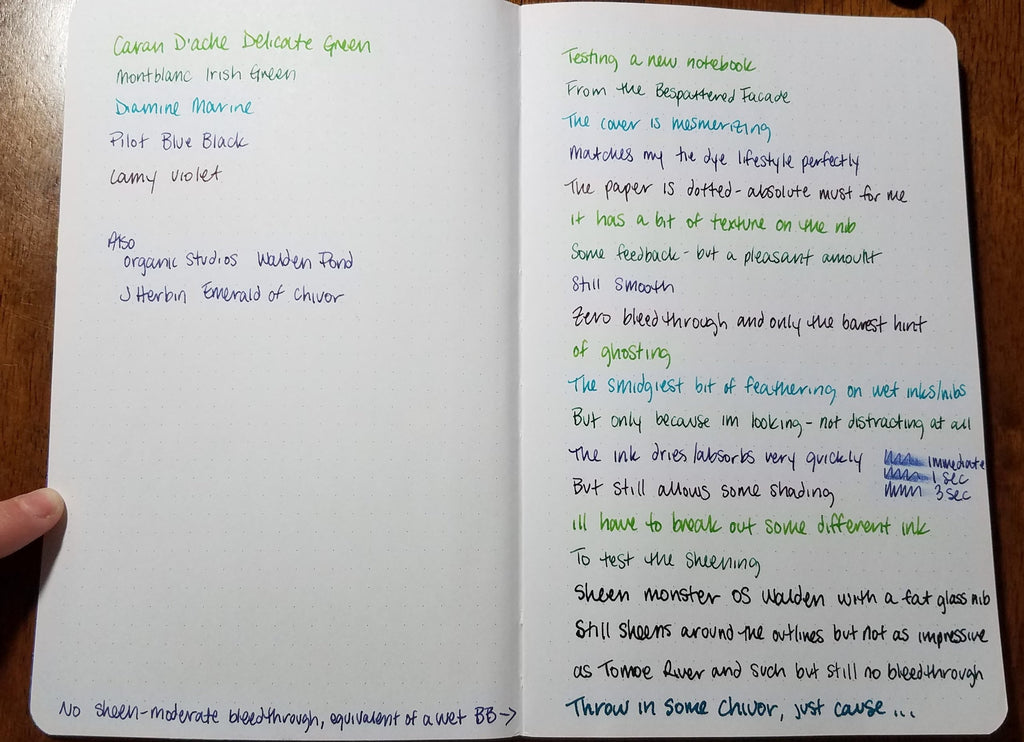 Caran D'ache Delicate Green
Montblanc Irish Green
Diamine Marine
Pilot Blue Black
Lamy violet
Also
organic Studios Walden Pond
J Herbin Emerald of Chivor
No sheen-moderate bleedthrough, equivalent of a wet BB →
Testing a new notebook
From the Bespattered Facade
The cover is mesmerizing
Matches my tie dye lifestyle perfectly
The paper is dotted - absolute must for me
it has a bit of texture on the nib
Some feedback - but a pleasant amount
Still Smooth
Zero bleedthrough and only the barest hint
of ghosting
The smidgiest bit of feathering on wet inks/nibs
But only because im looking - not distracting at all
The ink dries/absorbs very quickly immediate
1 sec
But still allows some shading 3 sec
ill have to break out some different ink
To test the sheening
Sheen monster OS Walden with a fat glass nib
Still sheens around the outlines but not as impressive
as Tomoe River and such but still no bleedthrough
Throw in some Chivor, just cause ...